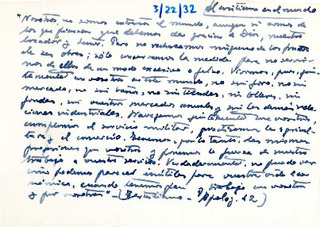 3/22/32 El cristiano en el mundo
"Nosotros no somos extraños al mundo, aunque sí somos de
los que piensan que debemos dar gracias a Dios, nuestro
Creador y Señor. Pero no rechazamos ninguno de los frutos
de sus obras; sólo conservamos la medida para no servir-
nos de ellos de un modo excesivo o falso. Vivimos, pues, jun-
tamente con vosotros en este mundo, no sin foro, no sin
mercado, no sin baños, no sin tiendas, sin talleres, sin
fondas, sin vuestros mercados anuales y sin los demás rela-
ciones industriales. Navegamos juntamente con vosotros,
cumplimos el servicio militar, practicamos la agricul-
tura y el comercio. Tenemos, por lo tanto, las mismas
profesiones que vosotros y ponemos la fuerza de nuestro
trabajo a vuestro servicio. Verdaderamente, no puedo ver
cómo podemos parecer inútiles para vuestra vida eco-
nómica, cuando tenemos que trabajo con vosotros
y por vosotros" (Tertuliano - Apolog. 42)